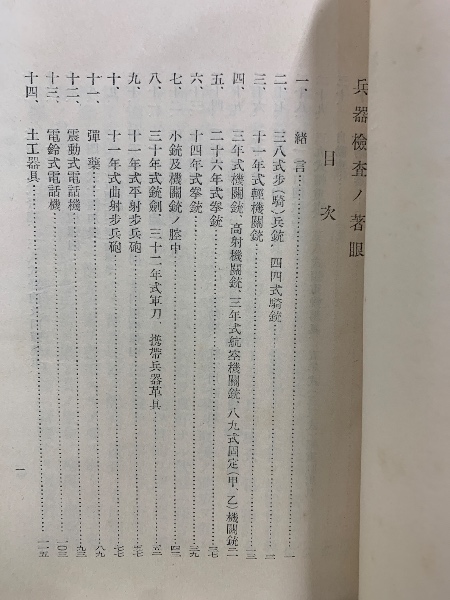 兵器檢査ノ著眼
目次
一、緒言……一
二、三八式步(騎)兵銃、四四式騎銃……二
三、十一年式輕機關銃……一三
四、三年式機關銃、高射機關銃、三年式航空機關銃、八九式固定(甲、乙)機關銃……二一
五、二十六年式拳銃……三七
六、十四年式拳銃……三九
七、小銃及機關銃ノ腔中……四三
八、三十年式銃劍、三十二年式軍刀、携帶兵器革具……五三
九、十一年式平射步兵砲……六七
十、十一年式曲射步兵砲……七七
十一、彈藥……八九
十二、震動式電話機……九三
十三、電鈴式電話機……一〇三
十四、土工器具……一一五
一